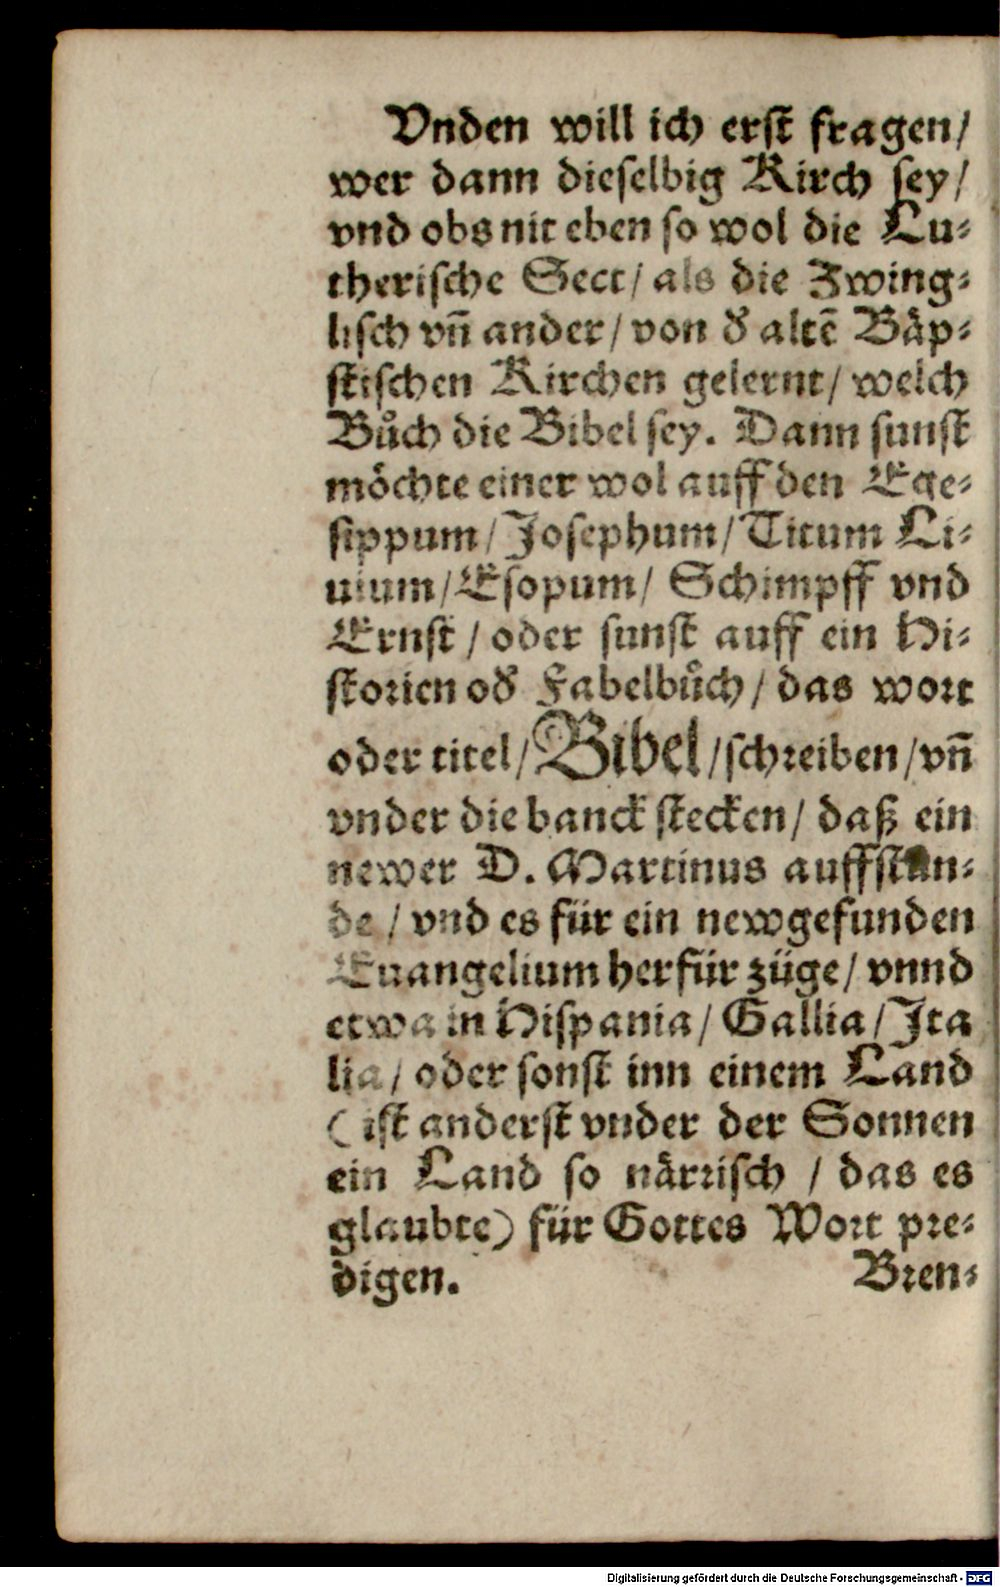 Vnden will ich erſt fragen/
wer dann dieſelbig Kirch ſey/
vnd obs nit eben ſo wol die Lu⸗
theriſche Sect/ als die Zwing⸗
liſch vn̄ ander/ von d̕ altē Bäp⸗
ſtiſchen Kirchen gelernt/ welch
Bůch die Bibel ſey. Dann ſunſt
möchte einer wol auff den Ege⸗
ſippum/ Joſephum/ Titum Li⸗
uium/ Eſopum/ Schimpff vnd
Ernſt/ oder ſunſt auff ein Hi⸗
ſtorien od̕ Fabelbůch/ das wort
oder titel/ Bibel/ ſchreiben/ vn̄
vnder die banck ſtecken/ daß ein
newer D. Martinus auffſtun⸗
de/ vnd es für ein newgefunden
Euangelium herfür züge/ vnnd
etwa in Hiſpania/ Gallia/ Ita
lia/ oder ſonſt inn einem Land
(iſt anderſt vnder der Sonnen
ein Land ſo närriſch/ das es
glaubte) für Gottes Wort pre⸗
digen. Bren⸗
Digitalisierung gefördert durch die Deutsche Forschungsgemeinschaft - DFG